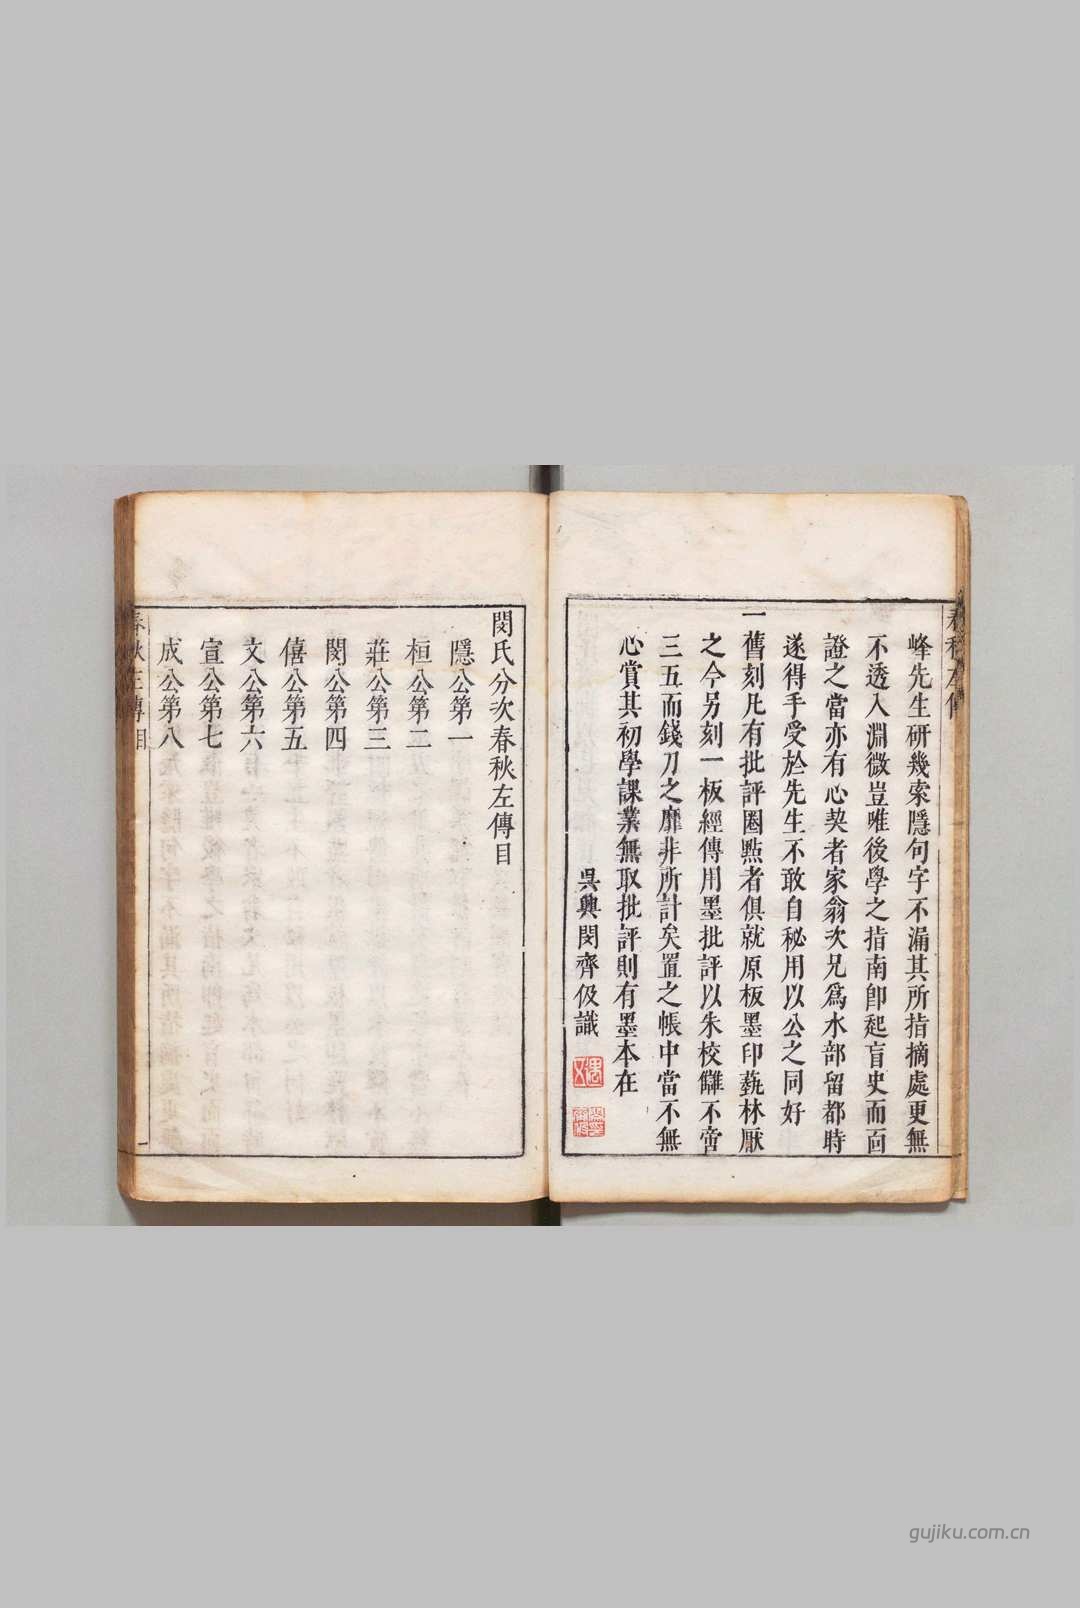 春秋左傳
峰先生研幾索隱句字不漏其所指摘處更無
不透入淵微豈唯後學之指南卽起盲史而面
證之當亦有心契者家翁次兄爲水部留都時
遂得手受於先生不敢自秘用以公之同好
一舊刻凡有批評圈點者俱就原板墨印蓺林厭
之今另刻一板經傳用墨批評以朱校讎不啻
三五而錢刀之靡非所計矣置之帳中當不無
心賞其初學課業無取批評則有墨本在
吳興閔齊伋識
閔氏分次春秋左傳目
隱公第一
桓公第二
莊公第三
閔公第四
僖公第五
文公第六
宣公第七
成公第八
春秋左傳目
一
gujiku.com.cn